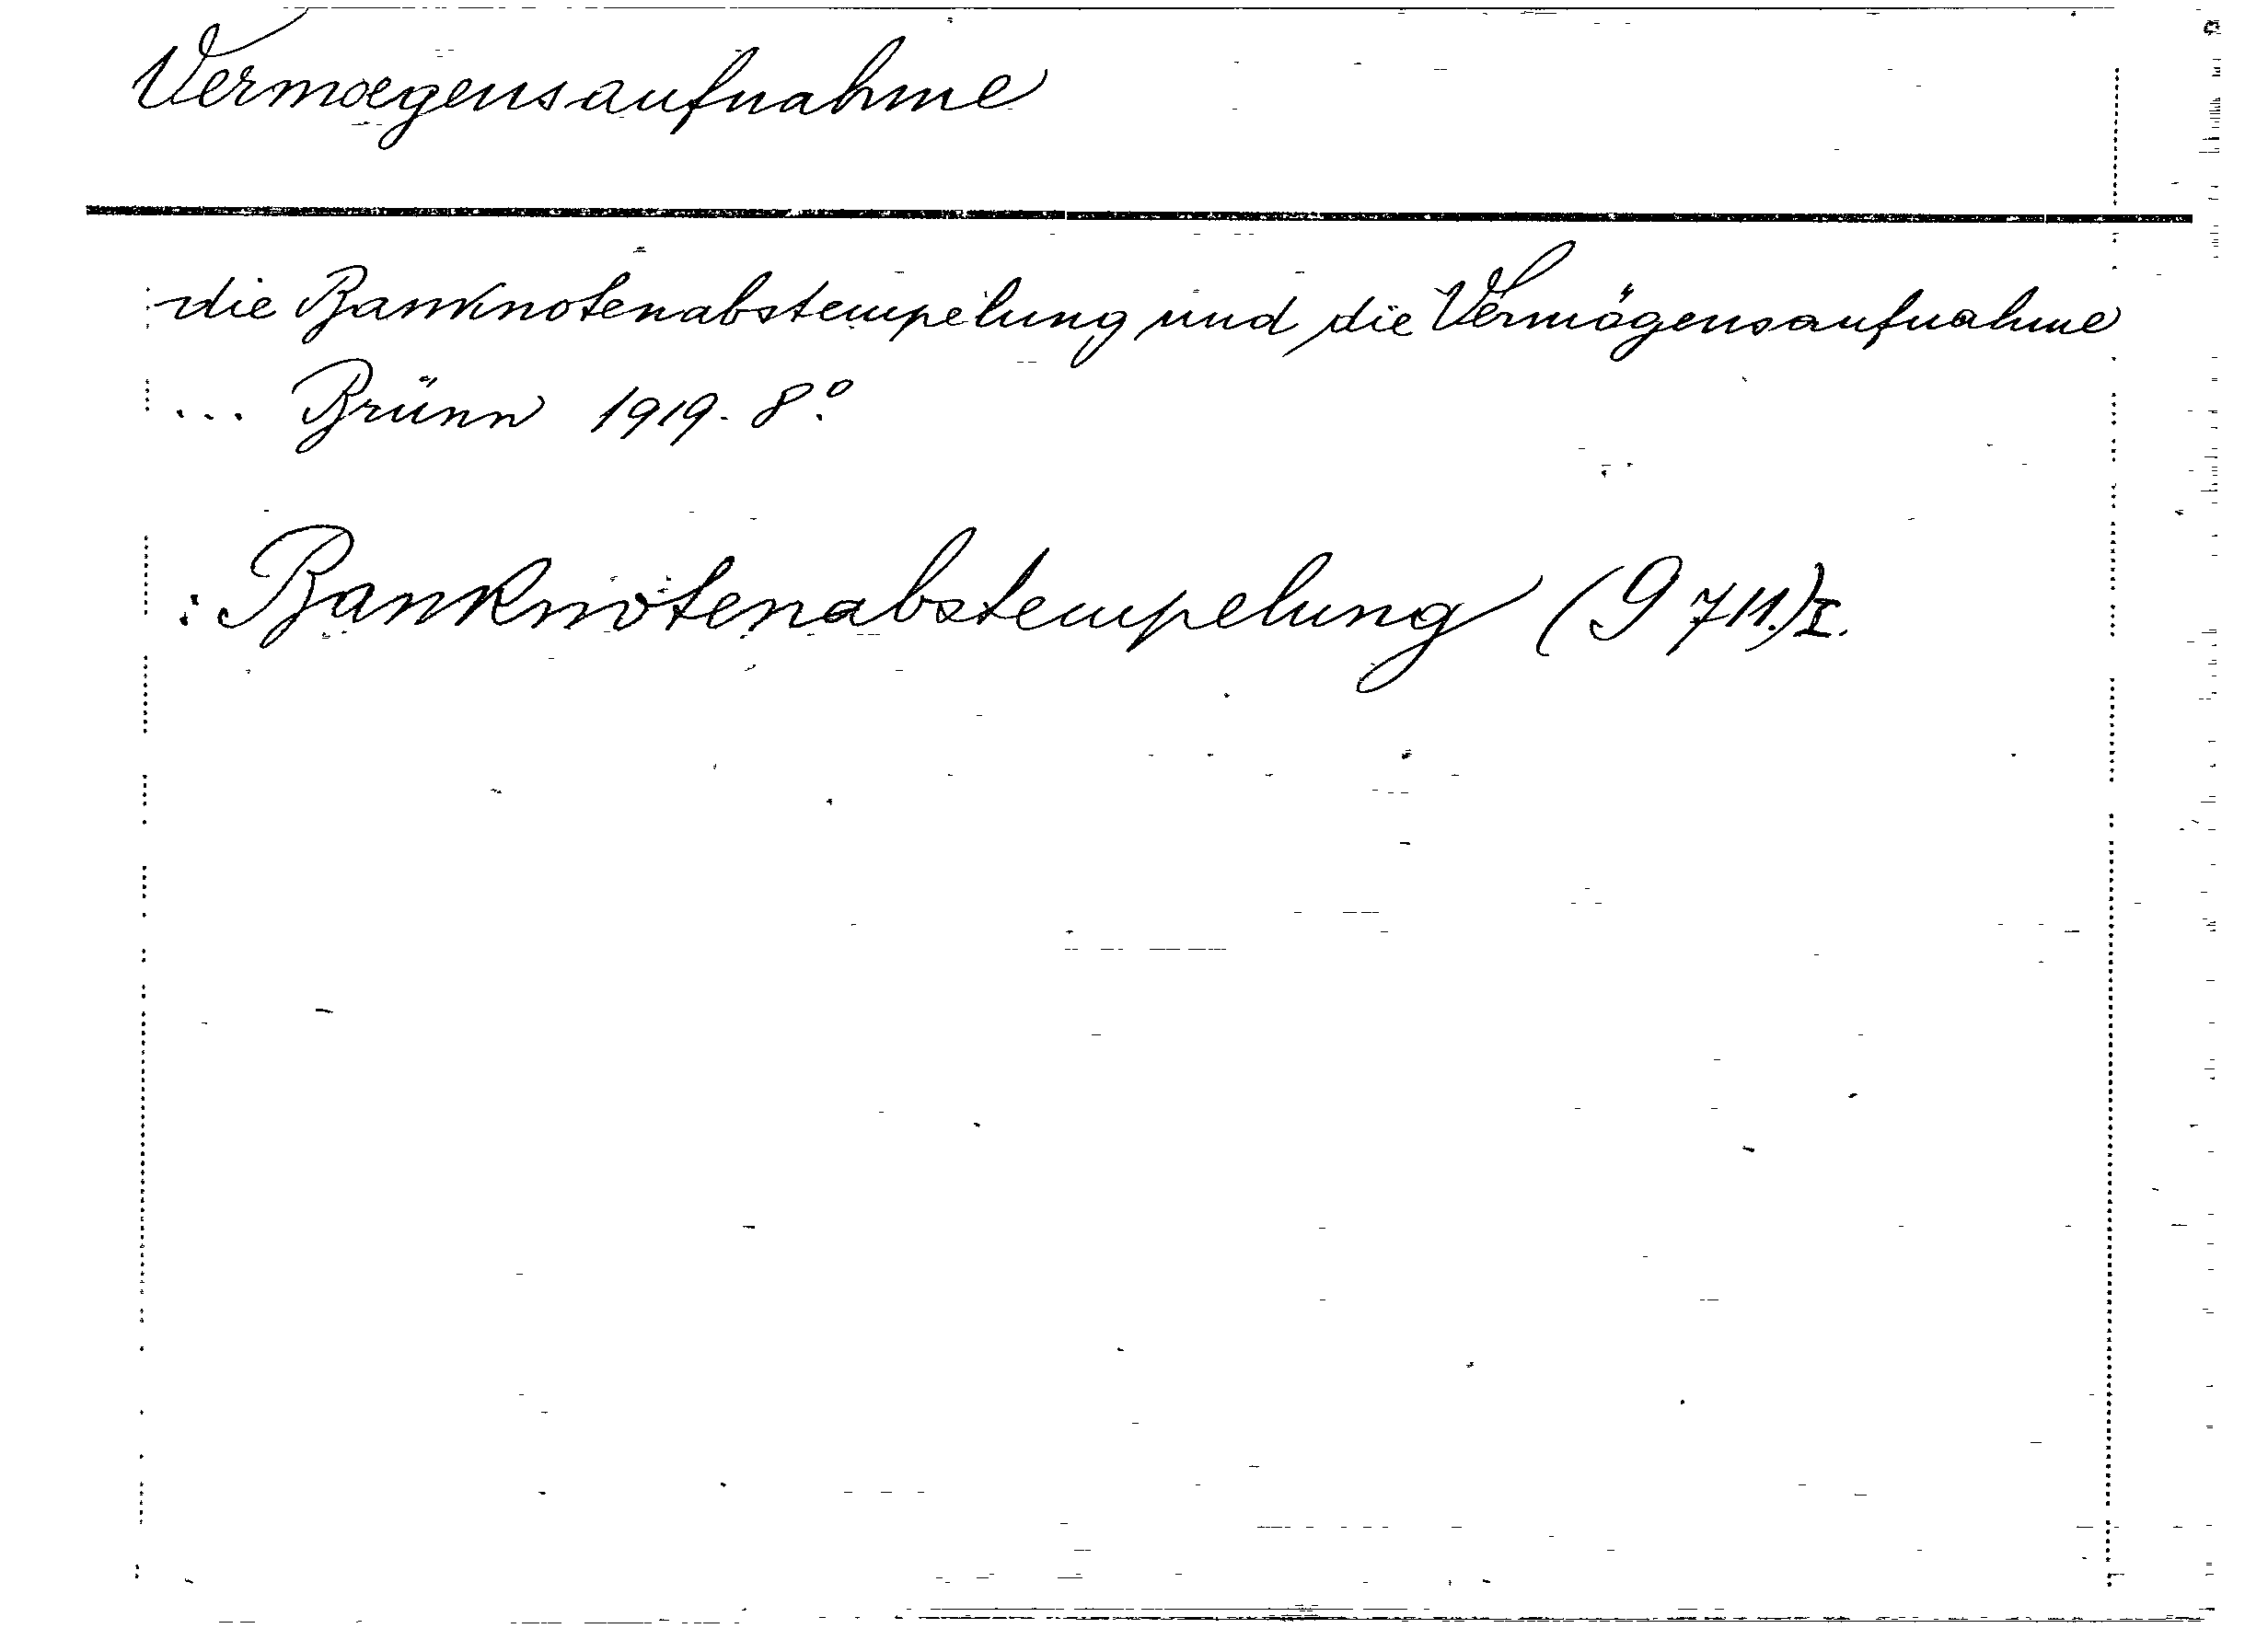 Vermoegensaufnahme
die Banknotenabstempelung und die Vermögensaufnahme
... Brünn 1919. 8°.
: Banknotenabstempelung (9 711.) I.